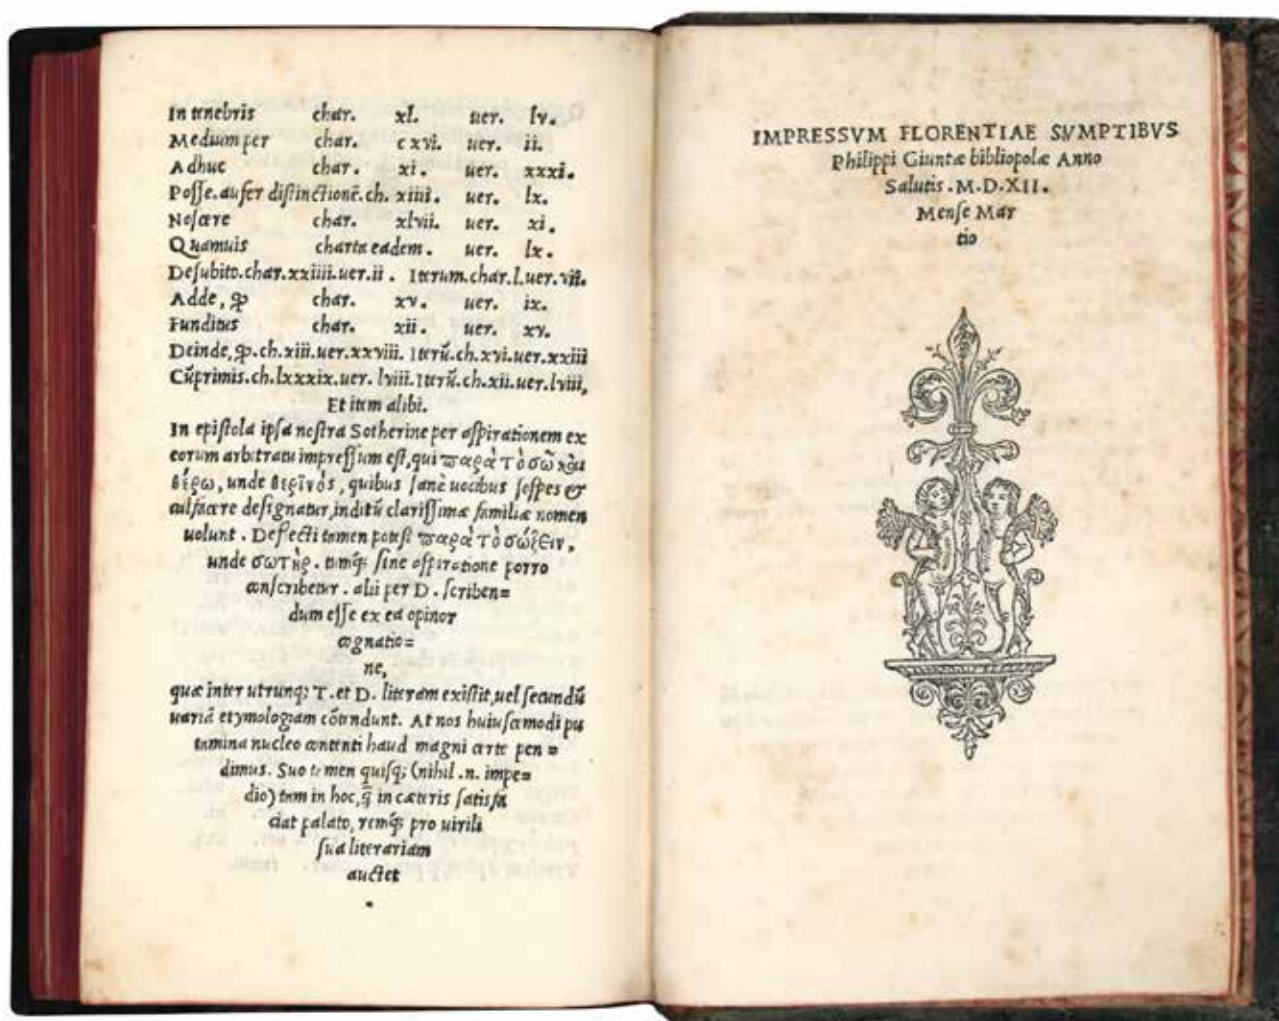 In tenebris char. xl. uer. lv.
Medium per char. cxvi. uer. ii.
Adhuc char. xi. uer. xxxi.
Posse. aufer distinctionē. ch. xiiii. uer. lx.
Noscere char. xlvii. uer. xi.
Quamuis charta eadem. uer. lx.
De subito. char. xxiiii. uer. ii. Iterum. char. l. uer. vii.
Adde, ꝙ char. xv. uer. ix.
Funditus char. xii. uer. xv.
Deinde, ꝙ. ch. xiii. uer. xxviii. Iterū. ch. xvi. uer. xxiii
Cūprimis. ch. lxxxix. uer. lviii. Iterū. ch. xii. uer. lviii,
Et item alibi.
In epistola ipsa nostra Sotherine per aspirationem ex
eorum arbitratu impressum est, qui παρὰ τὸ σῶ καὶ
θέρω, unde θερινὸς, quibus sanè uocibus sospes &
calfacere designatur, inditū clarissimæ familiæ nomen
uolunt. Deflecti tamen potest παρὰ τὸ σώζειν,
unde σωτὴρ. tamq́; sine aspiratione porro
conscribetur. alii per D. scriben=
dum esse ex ea opinor
cognatio=
ne,
quæ inter utrunq; T. et D. literam existit, uel secundū
uariā etymologiam cōtendunt. At nos huiuscemodi pu
tamina nucleo contenti haud magni certe pen=
dimus. Suo tamen quisq; (nihil .n. impe=
dio) tam in hoc, q̄ in cæteris satisfa
ciat palato, remq́; pro uirili
sua literariam
auctet
.
IMPRESSVM FLORENTIAE SVMPTIBVS
Philippi Giuntæ bibliopolæ Anno
Salutis. M.D.XII.
Mense Mar
tio